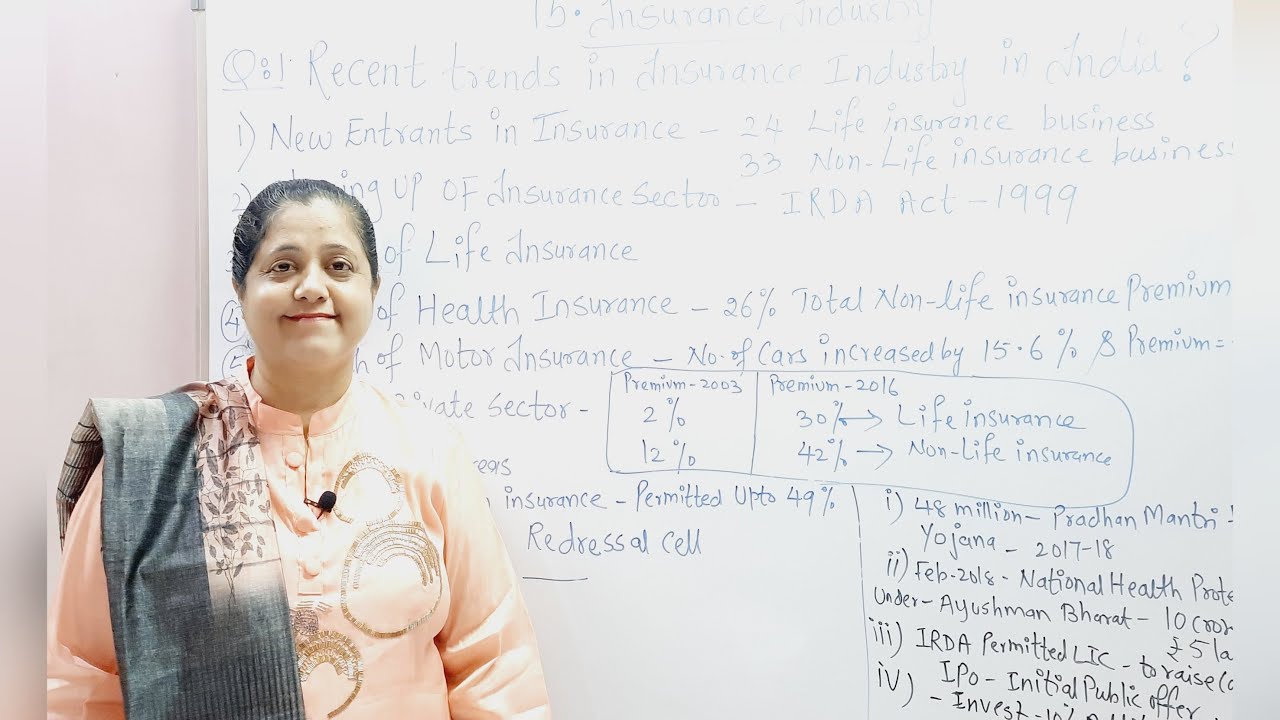 15. Insurance Industry
Q:1 Recent trends in Insurance Industry in India?
1) New Entrants in Insurance – 24 Life insurance business
33 Non-Life insurance busines
2 UP OF Insurance Sector – IRDA Act – 1999
of Life Insurance
4 of Health Insurance – 26% Total Non-life insurance Premium
5 of Motor Insurance – No. of Cars increased by 15.6% & Premium =
Sector –
Premium-2003 Premium-2016
2% 30% → Life insurance
12% 42% → Non-Life insurance
insurance – Permitted Upto 49%
Redressal cell
i) 48 million – Pradhan Mantri
Yojana – 2017-18
ii) Feb-2018 – National Health
Under – Ayushman Bharat – 10
₹ 5
iii) IRDA Permitted LIC – to raise
IPO – Initial Public offer
iv) – Invest –